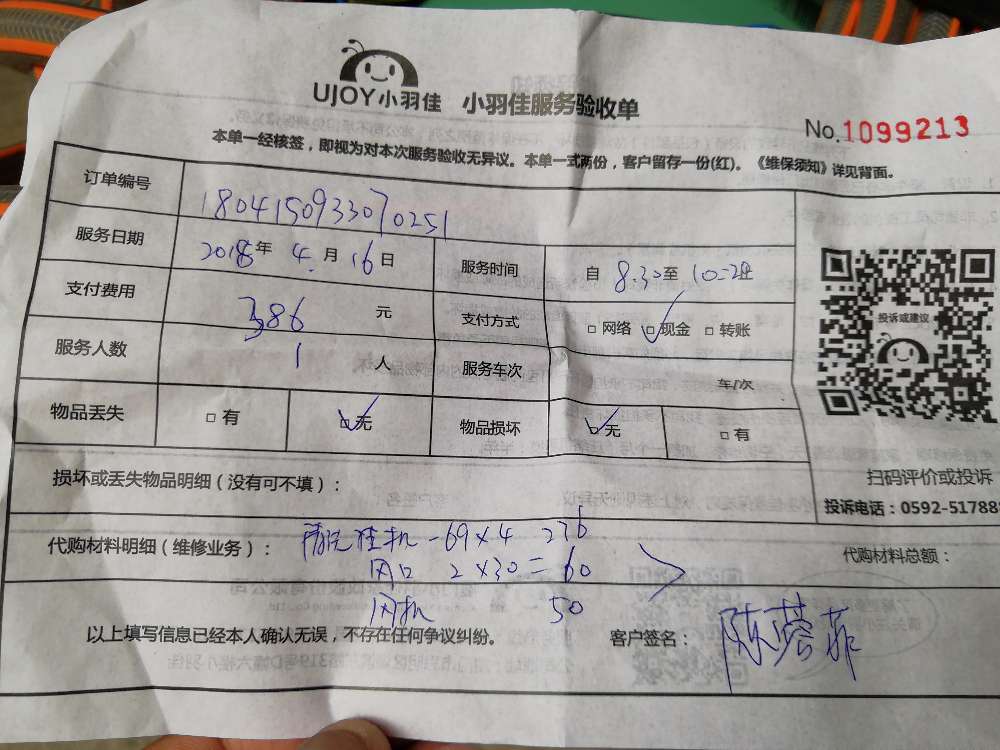 UJOY小羽佳 小羽佳服务验收单
No.1099213
本单一经核签，即视为对本次服务验收无异议。本单一式两份，客户留存一份(红)。《维保须知》详见背面。
订单编号 1804150933070251
服务日期 2018年 4 月 16 日 服务时间 自 8:30 至
支付费用 386 元 支付方式 □ 网络 □ 现金 □ 转账
服务人数 1 人 服务车次 车/次
物品丢失 □ 有 □ 无 物品损坏 □ 无 □ 有
投诉或建议
扫码评价或投诉
投诉电话：0592-51788
损坏或丢失物品明细（没有可不填）：
代购材料明细（维修业务）： 清洗挂机 -69×4 276 代购材料总额：
风口 2×30=60
风机 50
以上填写信息已经本人确认无误，不存在任何争议纠纷。 客户签名：